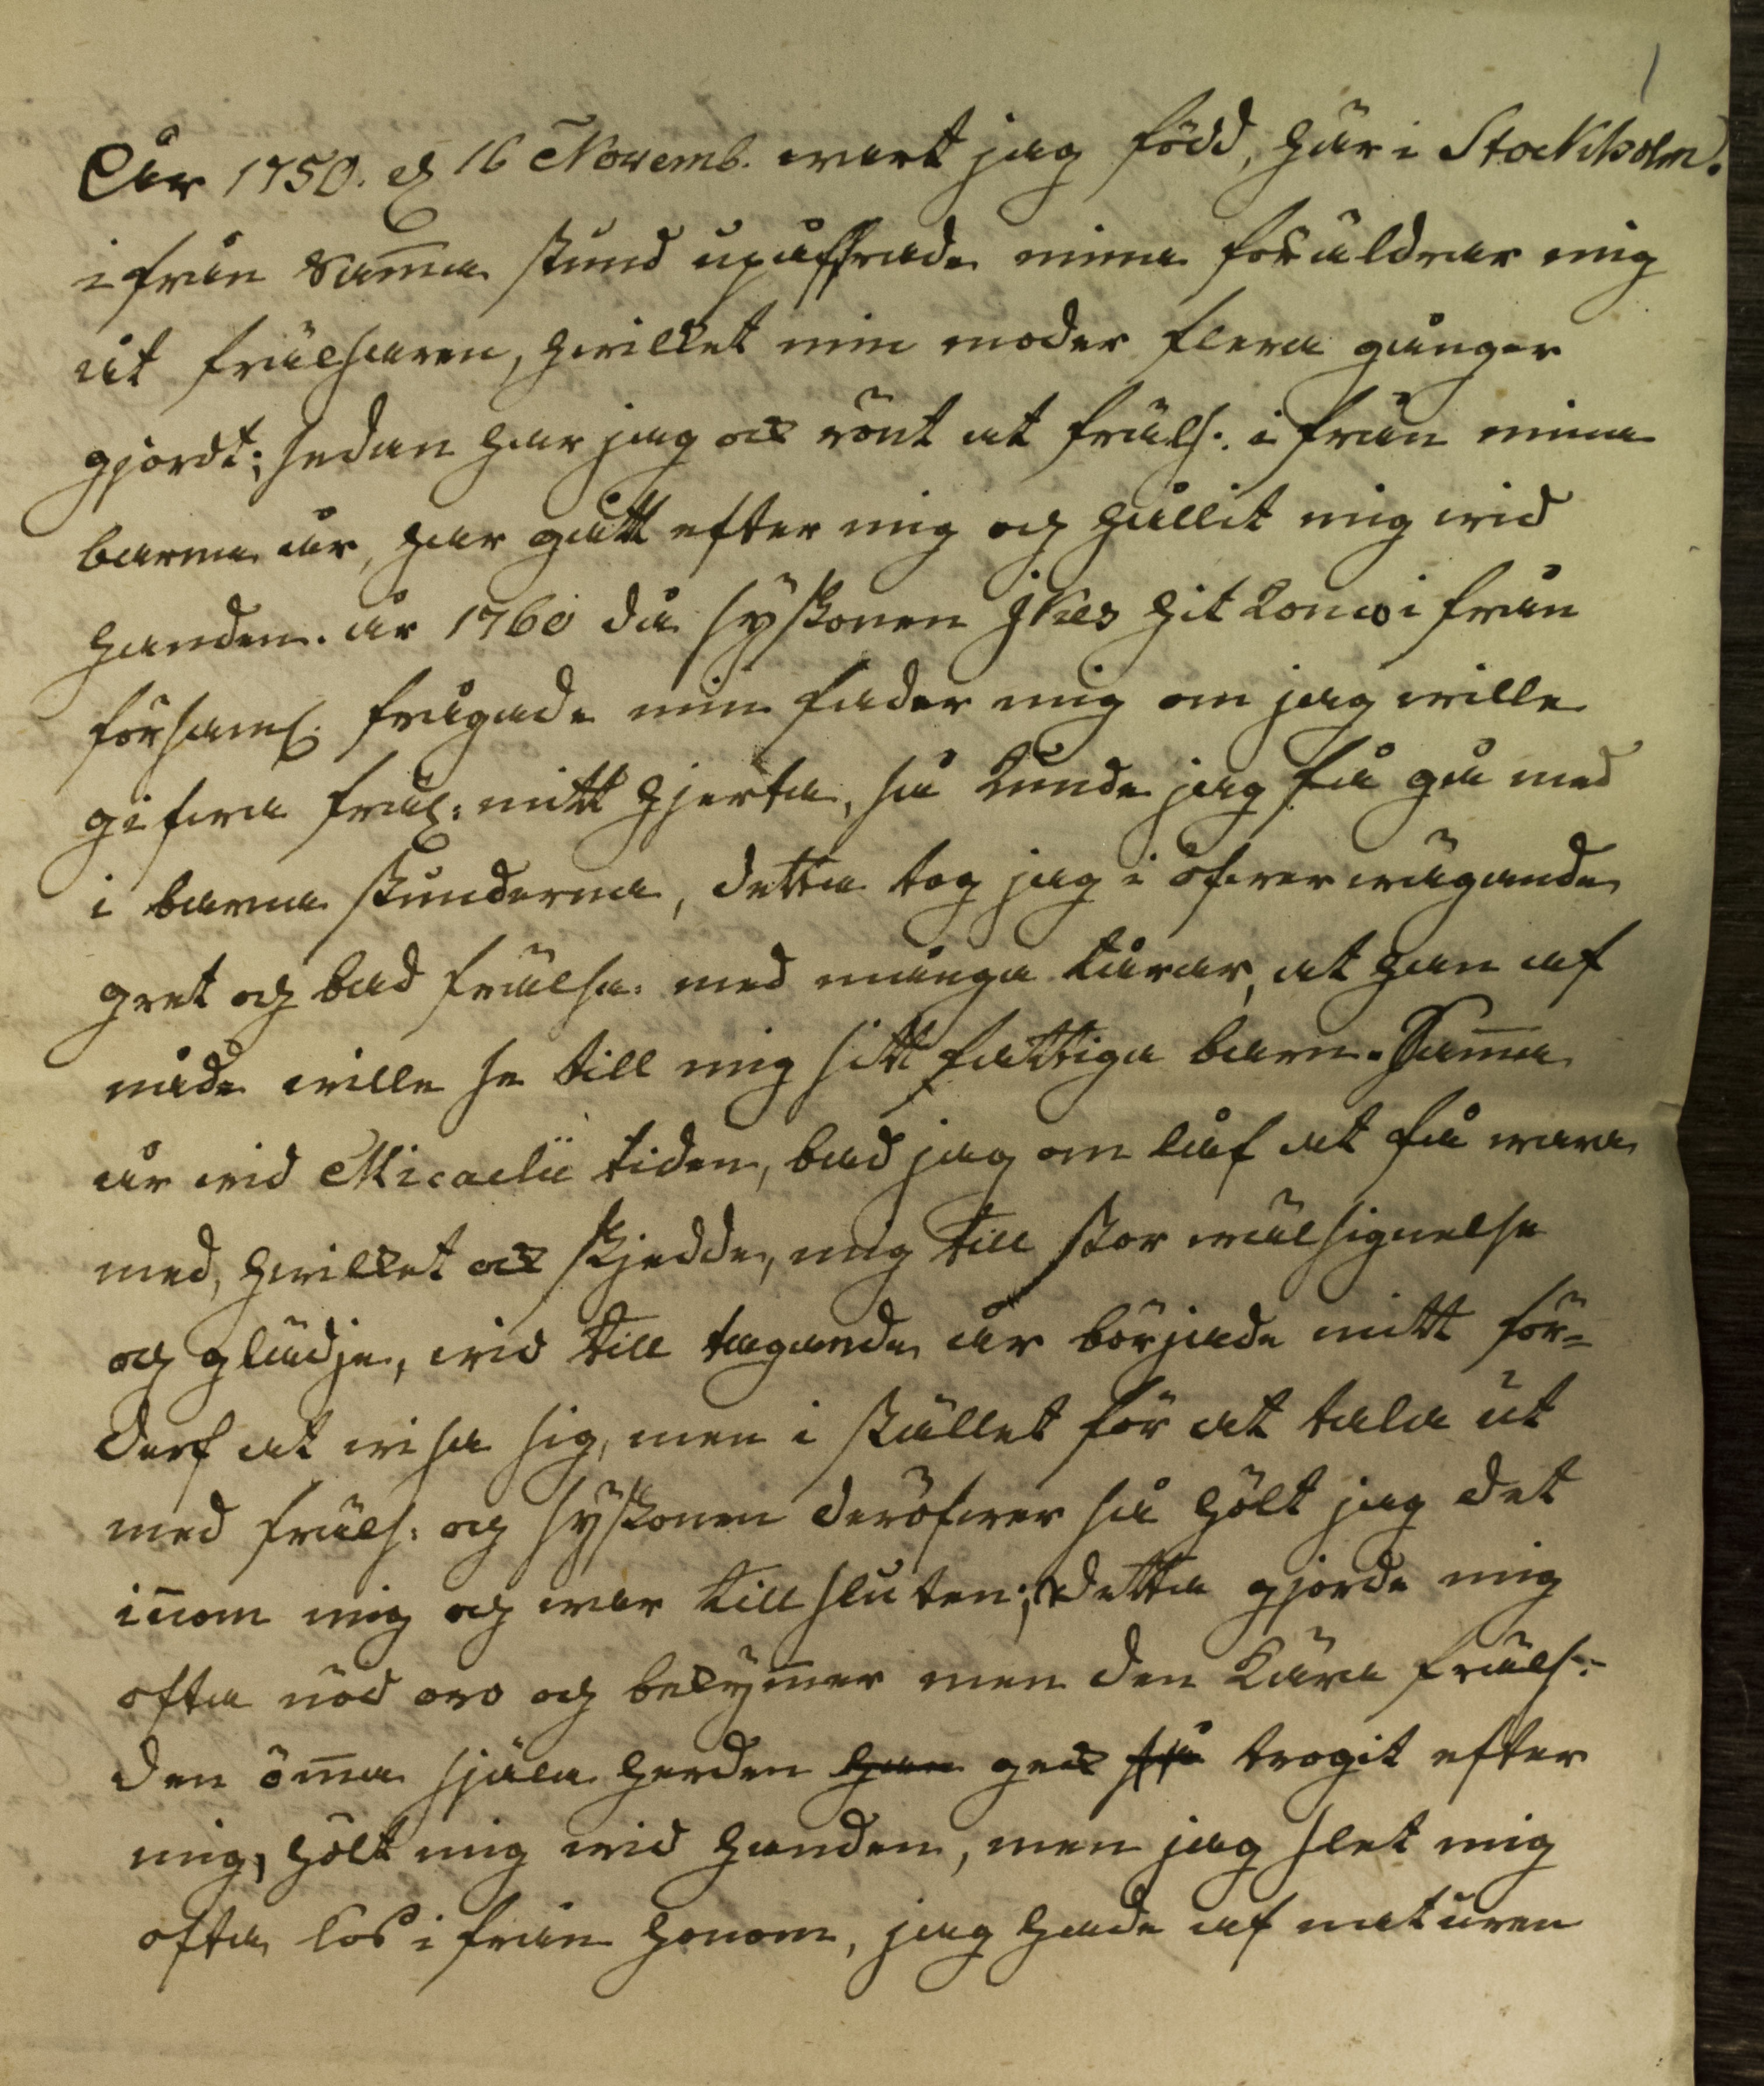 År 1750. d 16 Novemb. wart jag född, här i Stockholm.
ifrån samma stund upåffrade mina föräldrar mig
åt frälsaren, hwilket min moder flera gånger
gjordt; sedan har jag ock rönt at Fräls: ifrån mina
barna år, har gått efter mig och hållit mig wid
handen. år 1760 då syskonen hit komo ifrån
församl. frågade min fader mig om jag wille
gifwa Fräls: mitt hjerta, så kunde jag få gå med
i barna stunderna, detta tog jag i öfwerwägande
gret och bad Frälsa: med många tårar, at han af
nåde wille se till mig sitt fattiga barn. Samma
år wid Micaelii tiden, bad jag om låf at få wara
med, hwilket ock skjedde, mig till stor wälsignelse
och glädje, wid till tagande år började mitt för=
derf at wisa sig, men i stället för at tala ut
med Fräls: och syskonen deröfwer så hölt jag det
innom mig och war till sluten; detta gjorde mig
ofta nöd oro och bekymmer men den kära Fräls:
den ömma själa herden han gek så trogit efter
mig, hölt mig wid handen, men jag slet mig
ofta los ifrån honom, jag hade af naturen